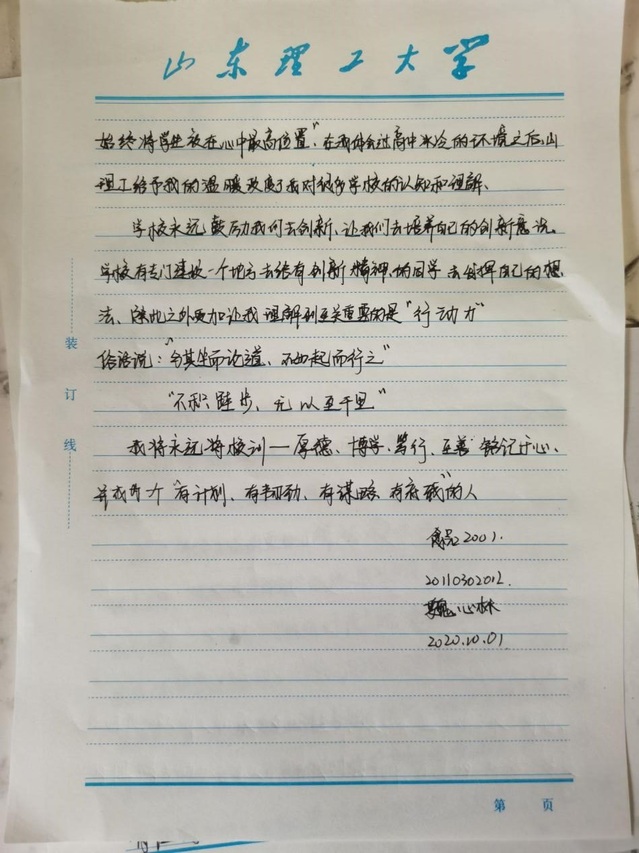 山东理工大学
始终将学生放在心中最高位置"在我体会过高中冰冷的环境之后,山
理工给予我的温暖改变了我对很多学校的认知和理解、
学校永远鼓励我们去创新、让我们去培养自己的创新意识。
学校有专门建设一个地方去给有创新精神的同学去发挥自己的想
法、除此之外更加让我理解到至关重要的是"行动力"
俗语说:"与其坐而论道、不如起而行之"
"不积跬步、无以至千里"
我将永远将校训—厚德、博学、笃行、至善 铭记于心、
并成为个"有计划、有韧劲、有谋略 有底线"的人
2001.
20110302012.
魏心林
2020.10.01.
装
订
线
第 页